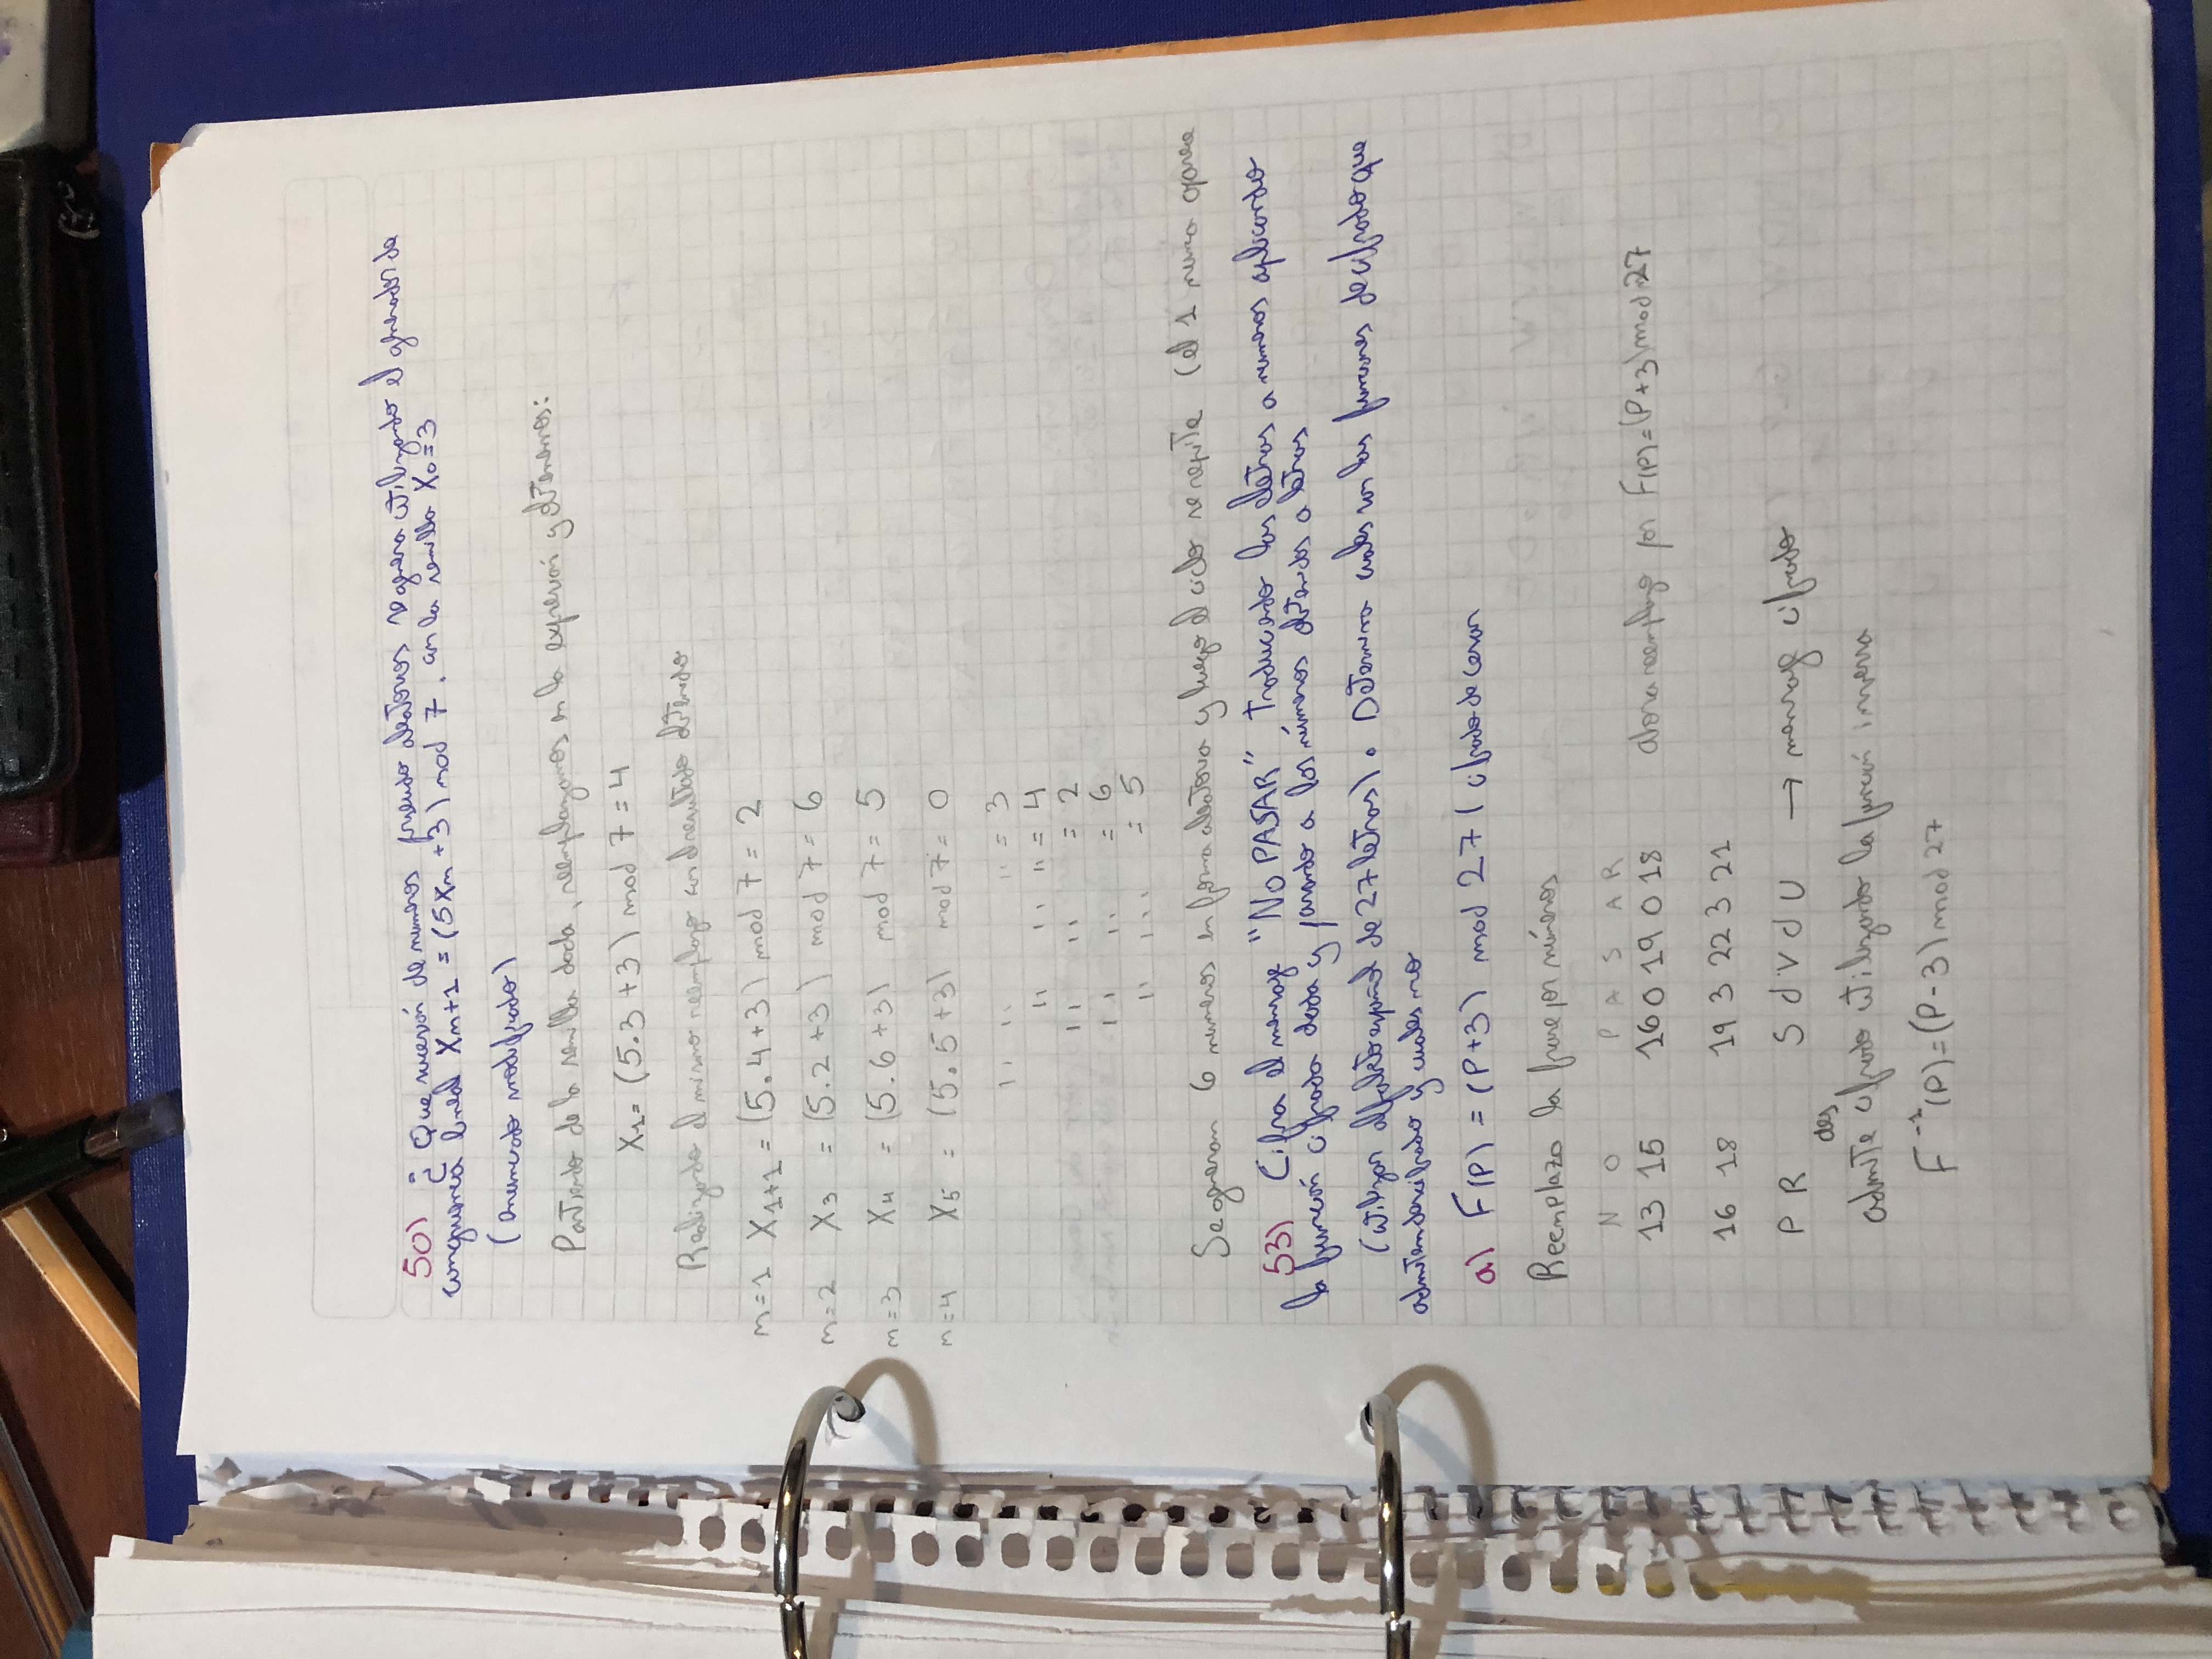 50) ¿ Que sucesión de numeros pseudo aleatorios se genera utilizando el generador de
congruencia lineal Xn+1 = (5Xn +3) mod 7. con la semilla X0=3
(enunciado modificado)
Partiendo de la semilla dada, reemplazamos en la expresión y obtenemos:
X1= (5.3 +3) mod 7 = 4
Realizando el mismo reemplazo con el resultado obtenido
n=1 X1+1 = (5.4+3) mod 7 = 2
n=2 X3 = (5.2 +3) mod 7 = 6
n=3 X4 = (5.6 +3) mod 7 = 5
n=4 X5 = (5.5+3) mod 7 = 0
" " " = 3
" " " = 4
" " = 2
" " = 6
" " = 5
Se generan 6 numeros en forma aleatoria y luego el ciclo se repite (el 1 nunca aparece
53) Cifra el mensaje "No PASAR" traduciendo las letras a numeros aplicando
la función cifrada dada y pasando a los números obtenidos a letras
(utilizar alfabeto español de 27 letras). Determina cuales son las funciones de cifrado que
admiten descifrado y cuales no
a) F(P) = (P+3) mod 27 ( cifrado de cesar
Reemplazo la frase por números
N O P A S A R
13 15 16 0 19 0 18 ahora reemplazo por F(P)=(P+3) mod 27
16 18 19 3 22 3 21
P R S d V d U → mensaje cifrado
des
admite cifrado utilizando la función inversa
F⁻¹(P)=(P-3) mod 27